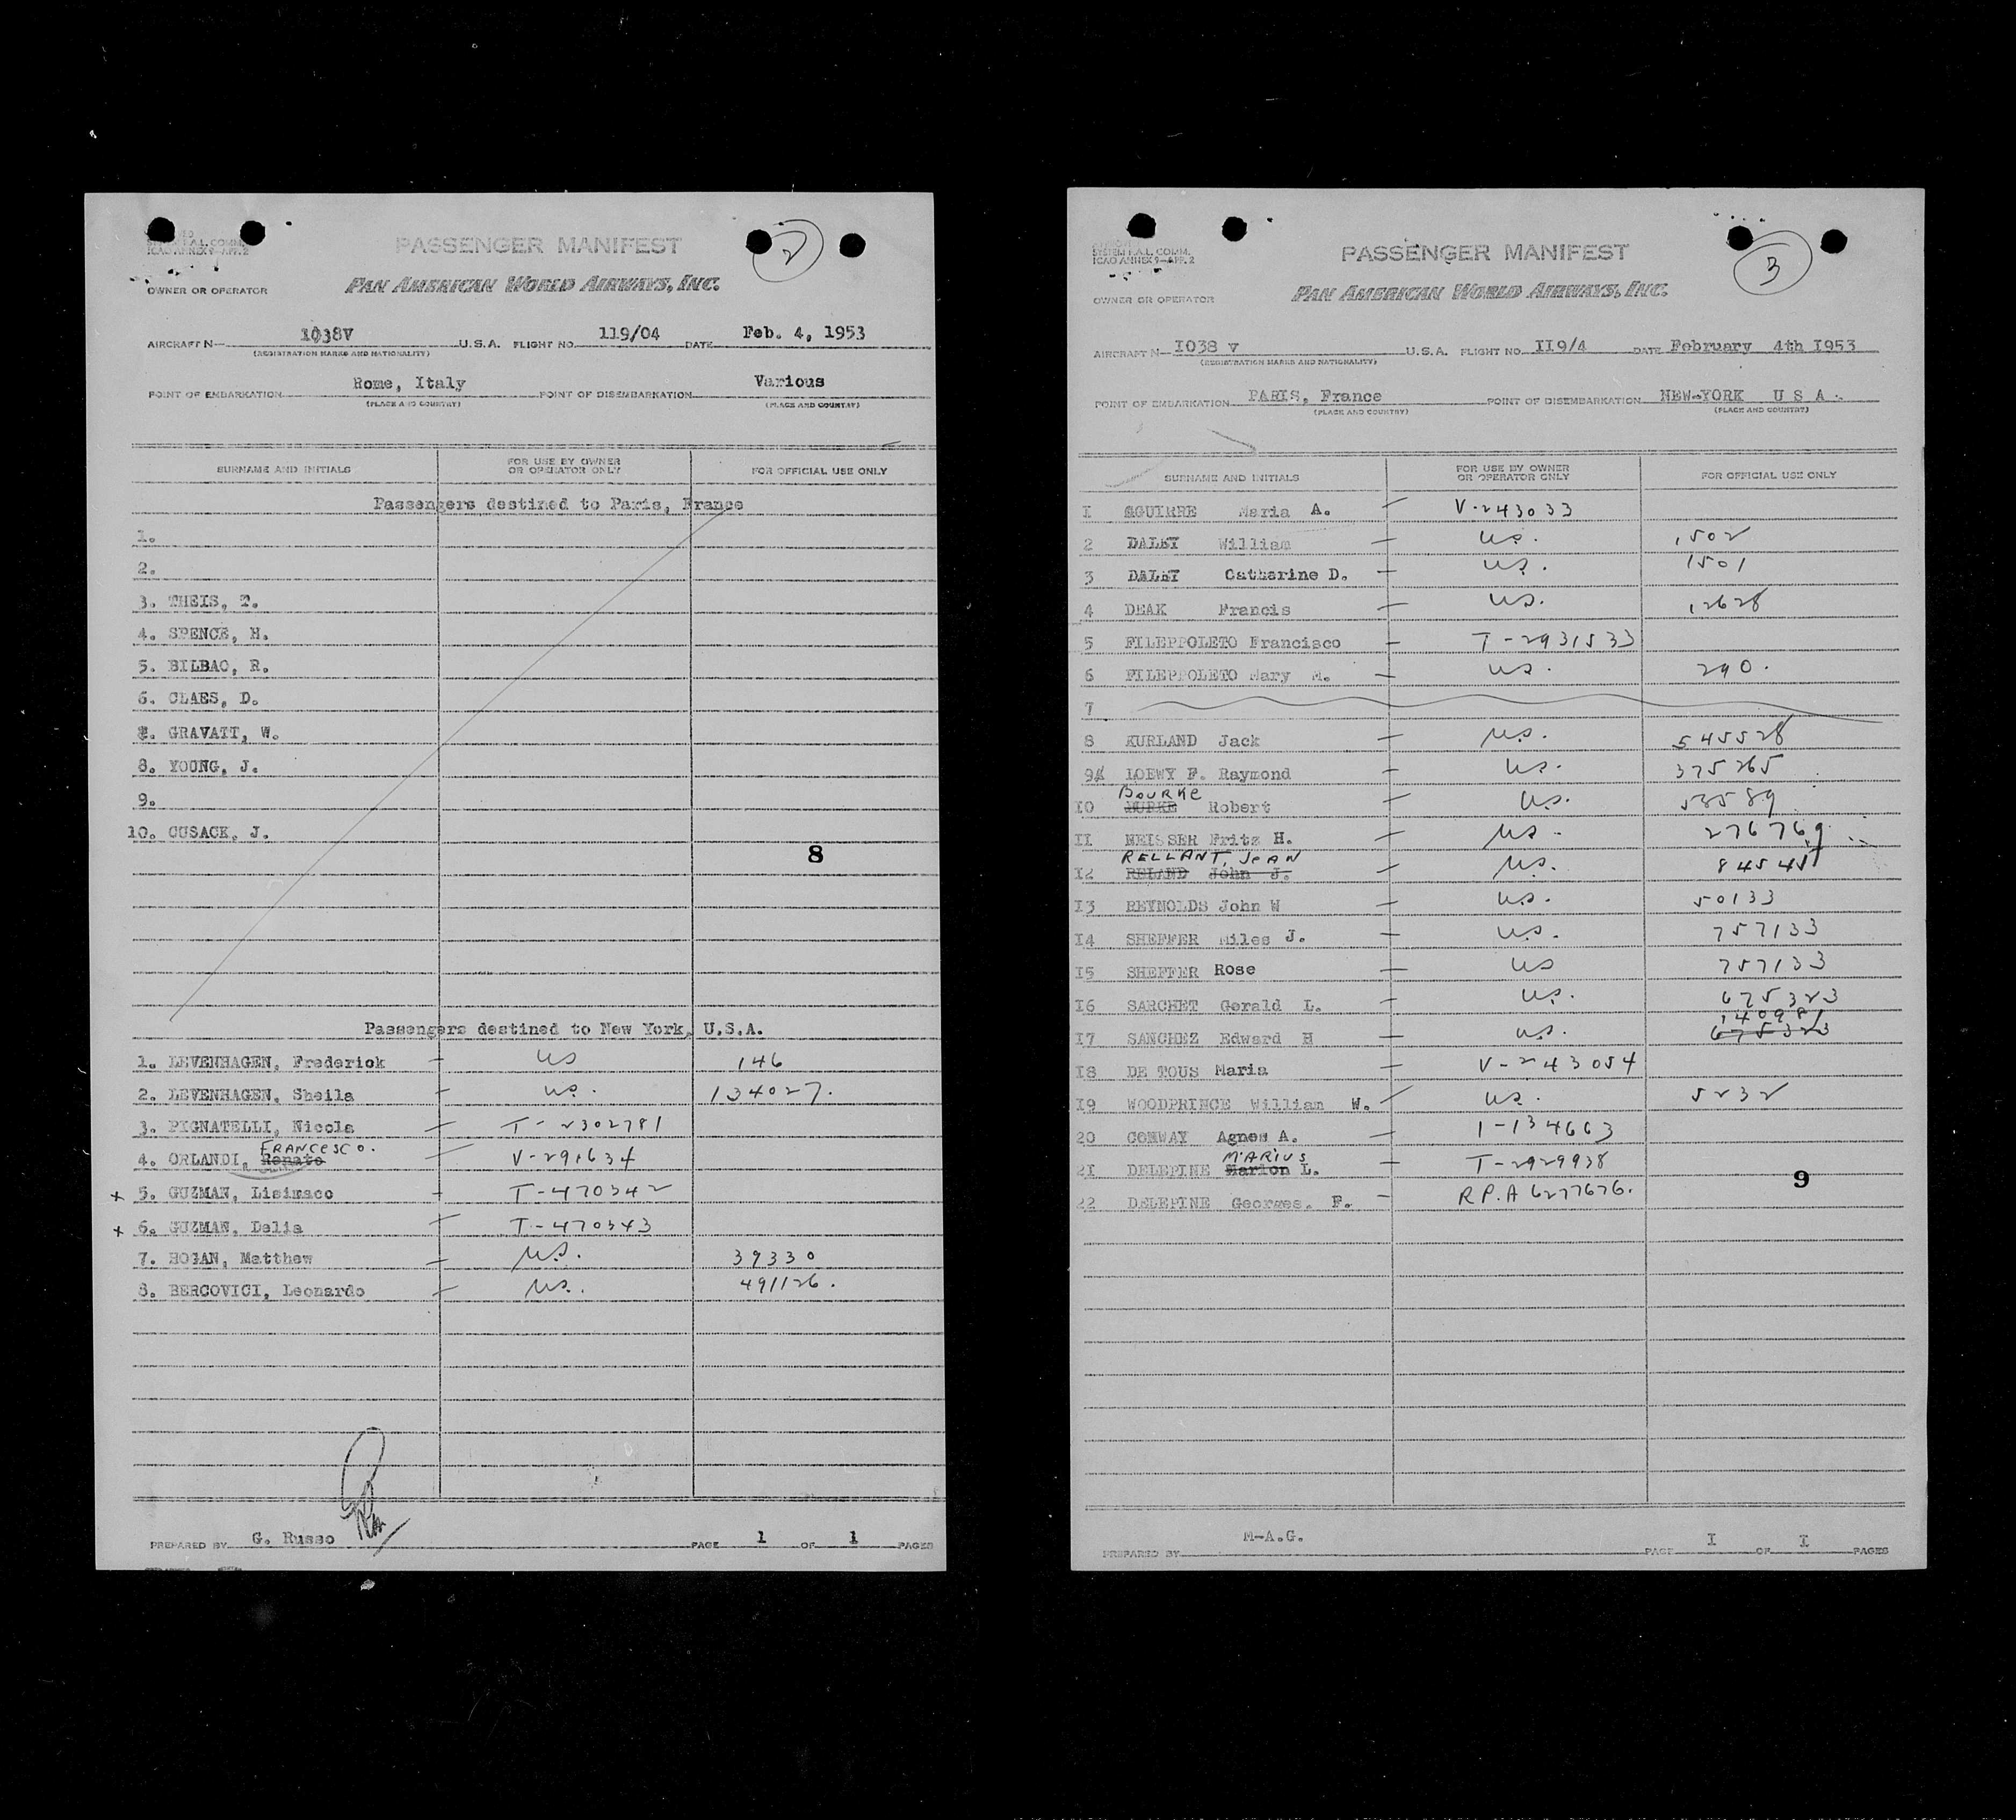 SYSTEM F.A.L. COMM.
ICAO ANNEX 9-APP. 2
PASSENGER MANIFEST
2
OWNER OR OPERATOR
PAN AMERICAN WORLD AIRWAYS, INC.
AIRCRAFT N- 1038V U.S.A. FLIGHT NO. 119/04 DATE Feb. 4, 1953
(REGISTRATION MARKS AND NATIONALITY)
POINT OF EMBARKATION Rome, Italy POINT OF DISEMBARKATION Various
(PLACE AND COUNTRY) (PLACE AND COUNTRY)
SURNAME AND INITIALS FOR USE BY OWNER OR OPERATOR ONLY FOR OFFICIAL USE ONLY
Passengers destined to Paris, France
1.
2.
3. THEIS, T.
4. SPENCE, H.
5. BILBAO, R.
6. CLAES, D.
7. GRAVATT, W.
8. YOUNG, J.
9.
10. CUSACK, J.
8
Passengers destined to New York, U.S.A.
1. LEVENHAGEN, Frederick - US 146
2. LEVENHAGEN, Sheila - US. 134027.
3. PIGNATELLI, Nicola - T-2302781
FRANCESCO.
4. ORLANDI, Renato - V-291634
x 5. GUZMAN, Lisimaco - T-470342
x 6. GUZMAN, Delia - T-470343
7. HOGAN, Matthew - US. 39330
8. BERCOVICI, Leonardo - US. 491126.
PREPARED BY G. Russo PAGE 1 OF 1 PAGES
SYSTEM F.A.L. COMM.
ICAO ANNEX 9-APP. 2
PASSENGER MANIFEST
3
OWNER OR OPERATOR
PAN AMERICAN WORLD AIRWAYS, INC.
AIRCRAFT N- I038 V U.S.A. FLIGHT NO. II9/4 DATE February 4th I953
(REGISTRATION MARKS AND NATIONALITY)
POINT OF EMBARKATION PARIS, France POINT OF DISEMBARKATION NEW-YORK U S A.
(PLACE AND COUNTRY) (PLACE AND COUNTRY)
SURNAME AND INITIALS FOR USE BY OWNER OR OPERATOR ONLY FOR OFFICIAL USE ONLY
I AGUIRRE Maria A. - V-243033
2 DALEY William - US. 1502
3 DALEY Catherine D. - US. 1501
4 DEAK Francis - US. 12628
5 FILEPPOLETO Francisco - T-2931533
6 FILEPPOLETO Mary M. - US. 290.
7
8 KURLAND Jack - US. 545528
9 LOEWY F. Raymond - US. 375265
BOURKE
I0 Robert - US. 53589
II NEISSER Fritz H. - US. 276769
RELLANT, JEAN
I2 RELAND John J. - US. 84545
I3 REYNOLDS John W - US. 50133
I4 SHEFFER Miles J. - US. 757133
I5 SHEFFER Rose - US 757133
I6 SARCHET Gerald L. - US. 675323
14098
I7 SANCHEZ Edward H - US. 675323
I8 DE TOUS Maria - V-243054
I9 WOODPRINCE William W. - US. 5232
20 CONWAY Agnes A. - I-134663
MARIUS
2I DELEPINE Marion L. - T-2929938
22 DELEPINE Georges. F. - R.P.A 6277676.
9
PREPARED BY M-A.G. PAGE I OF I PAGES